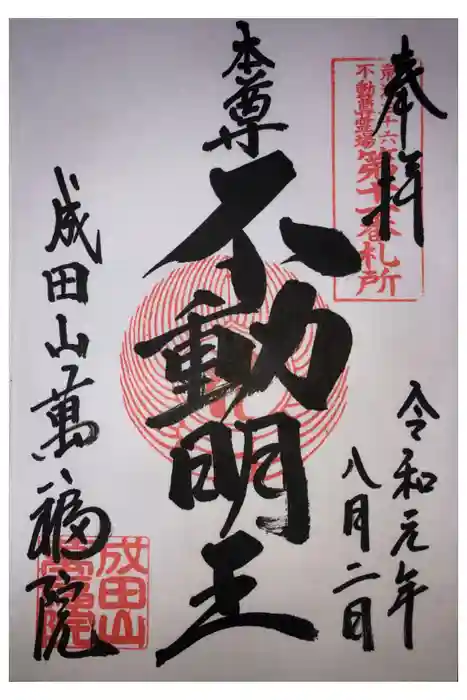 奉拝
不動尊霊場
札所
令和元年
八月二日
本尊
不動明王
成田山萬福院
成田山
萬福院